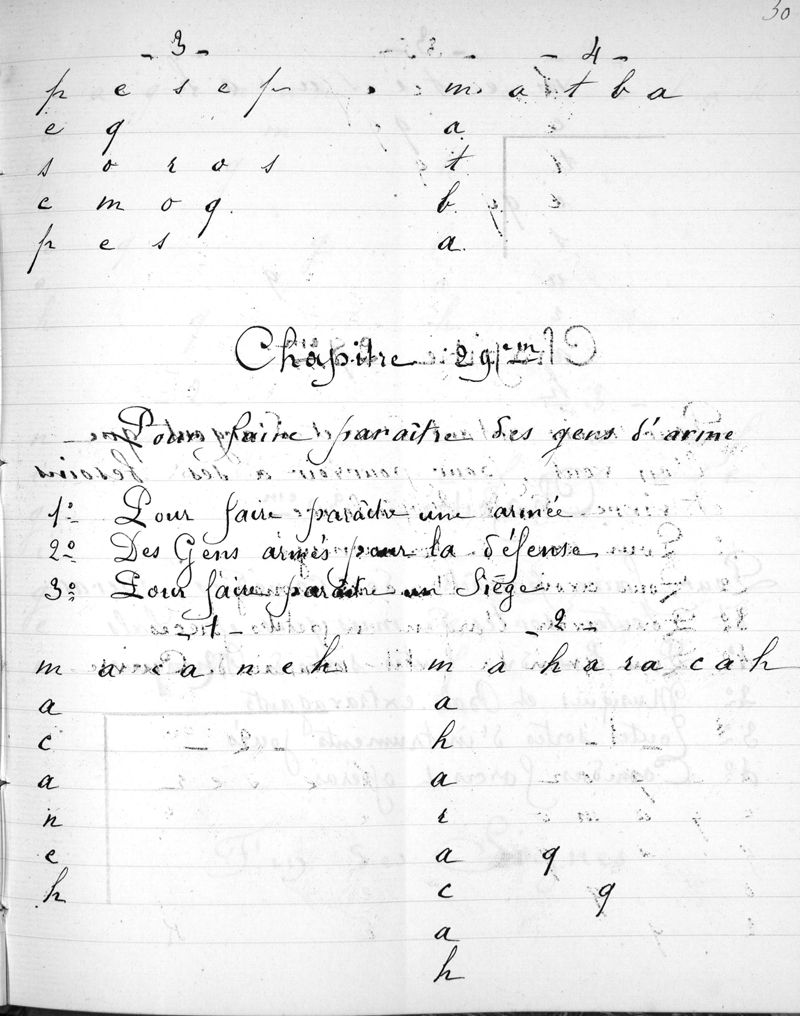 30
- 3 - - 4 -
p e s e p m a t b a
e q a
s o r o s t
e m o q b
p e s a
Chapitre 29em
Pour faire paraître des gens d'arme
1º Pour faire paraître une armée
2º Des Gens armés pour la défense
3º Pour faire paraître un Siège
- 1 - - 2 -
m a c a n e h m a h a r a c a h
a a
c h
a a
n r
e a q
h c q
a
h